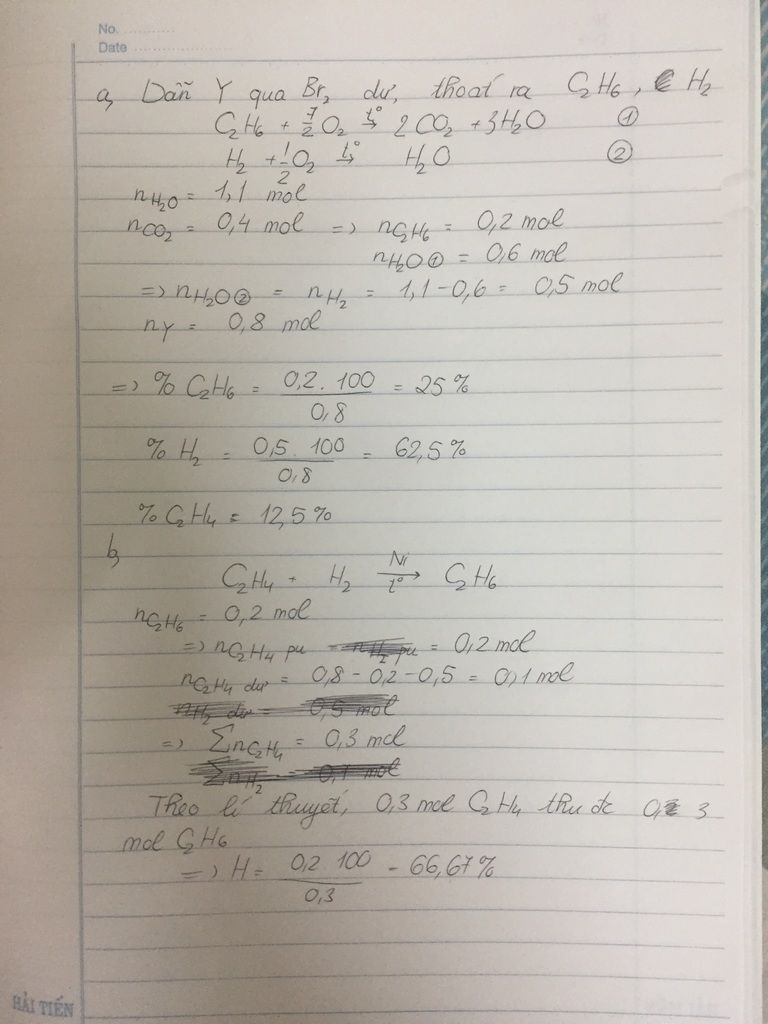 No. ............
Date ......................
a, Dẫn Y qua Br₂ dư, thoát ra C₂H₆, H₂
C₂H₆ + 7/2 O₂ t°→ 2CO₂ + 3H₂O ①
H₂ + 1/2 O₂ t°→ H₂O ②
nH₂O = 1,1 mol
nCO₂ = 0,4 mol => nC₂H₆ = 0,2 mol
nH₂O① = 0,6 mol
=> nH₂O② = nH₂ = 1,1 - 0,6 = 0,5 mol
nY = 0,8 mol
=> % C₂H₆ = 0,2 . 100 / 0,8 = 25 %
% H₂ = 0,5 . 100 / 0,8 = 62,5 %
% C₂H₄ = 12,5 %
b,
C₂H₄ + H₂ Ni t°→ C₂H₆
nC₂H₆ = 0,2 mol
=> nC₂H₄ pu = 0,2 mol
nC₂H₄ dư = 0,8 - 0,2 - 0,5 = 0,1 mol
=> ΣnC₂H₄ = 0,3 mol
Theo lí thuyết, 0,3 mol C₂H₄ thu đc 0,3
mol C₂H₆
=> H = 0,2 . 100 / 0,3 = 66,67 %
HẢI TIẾN